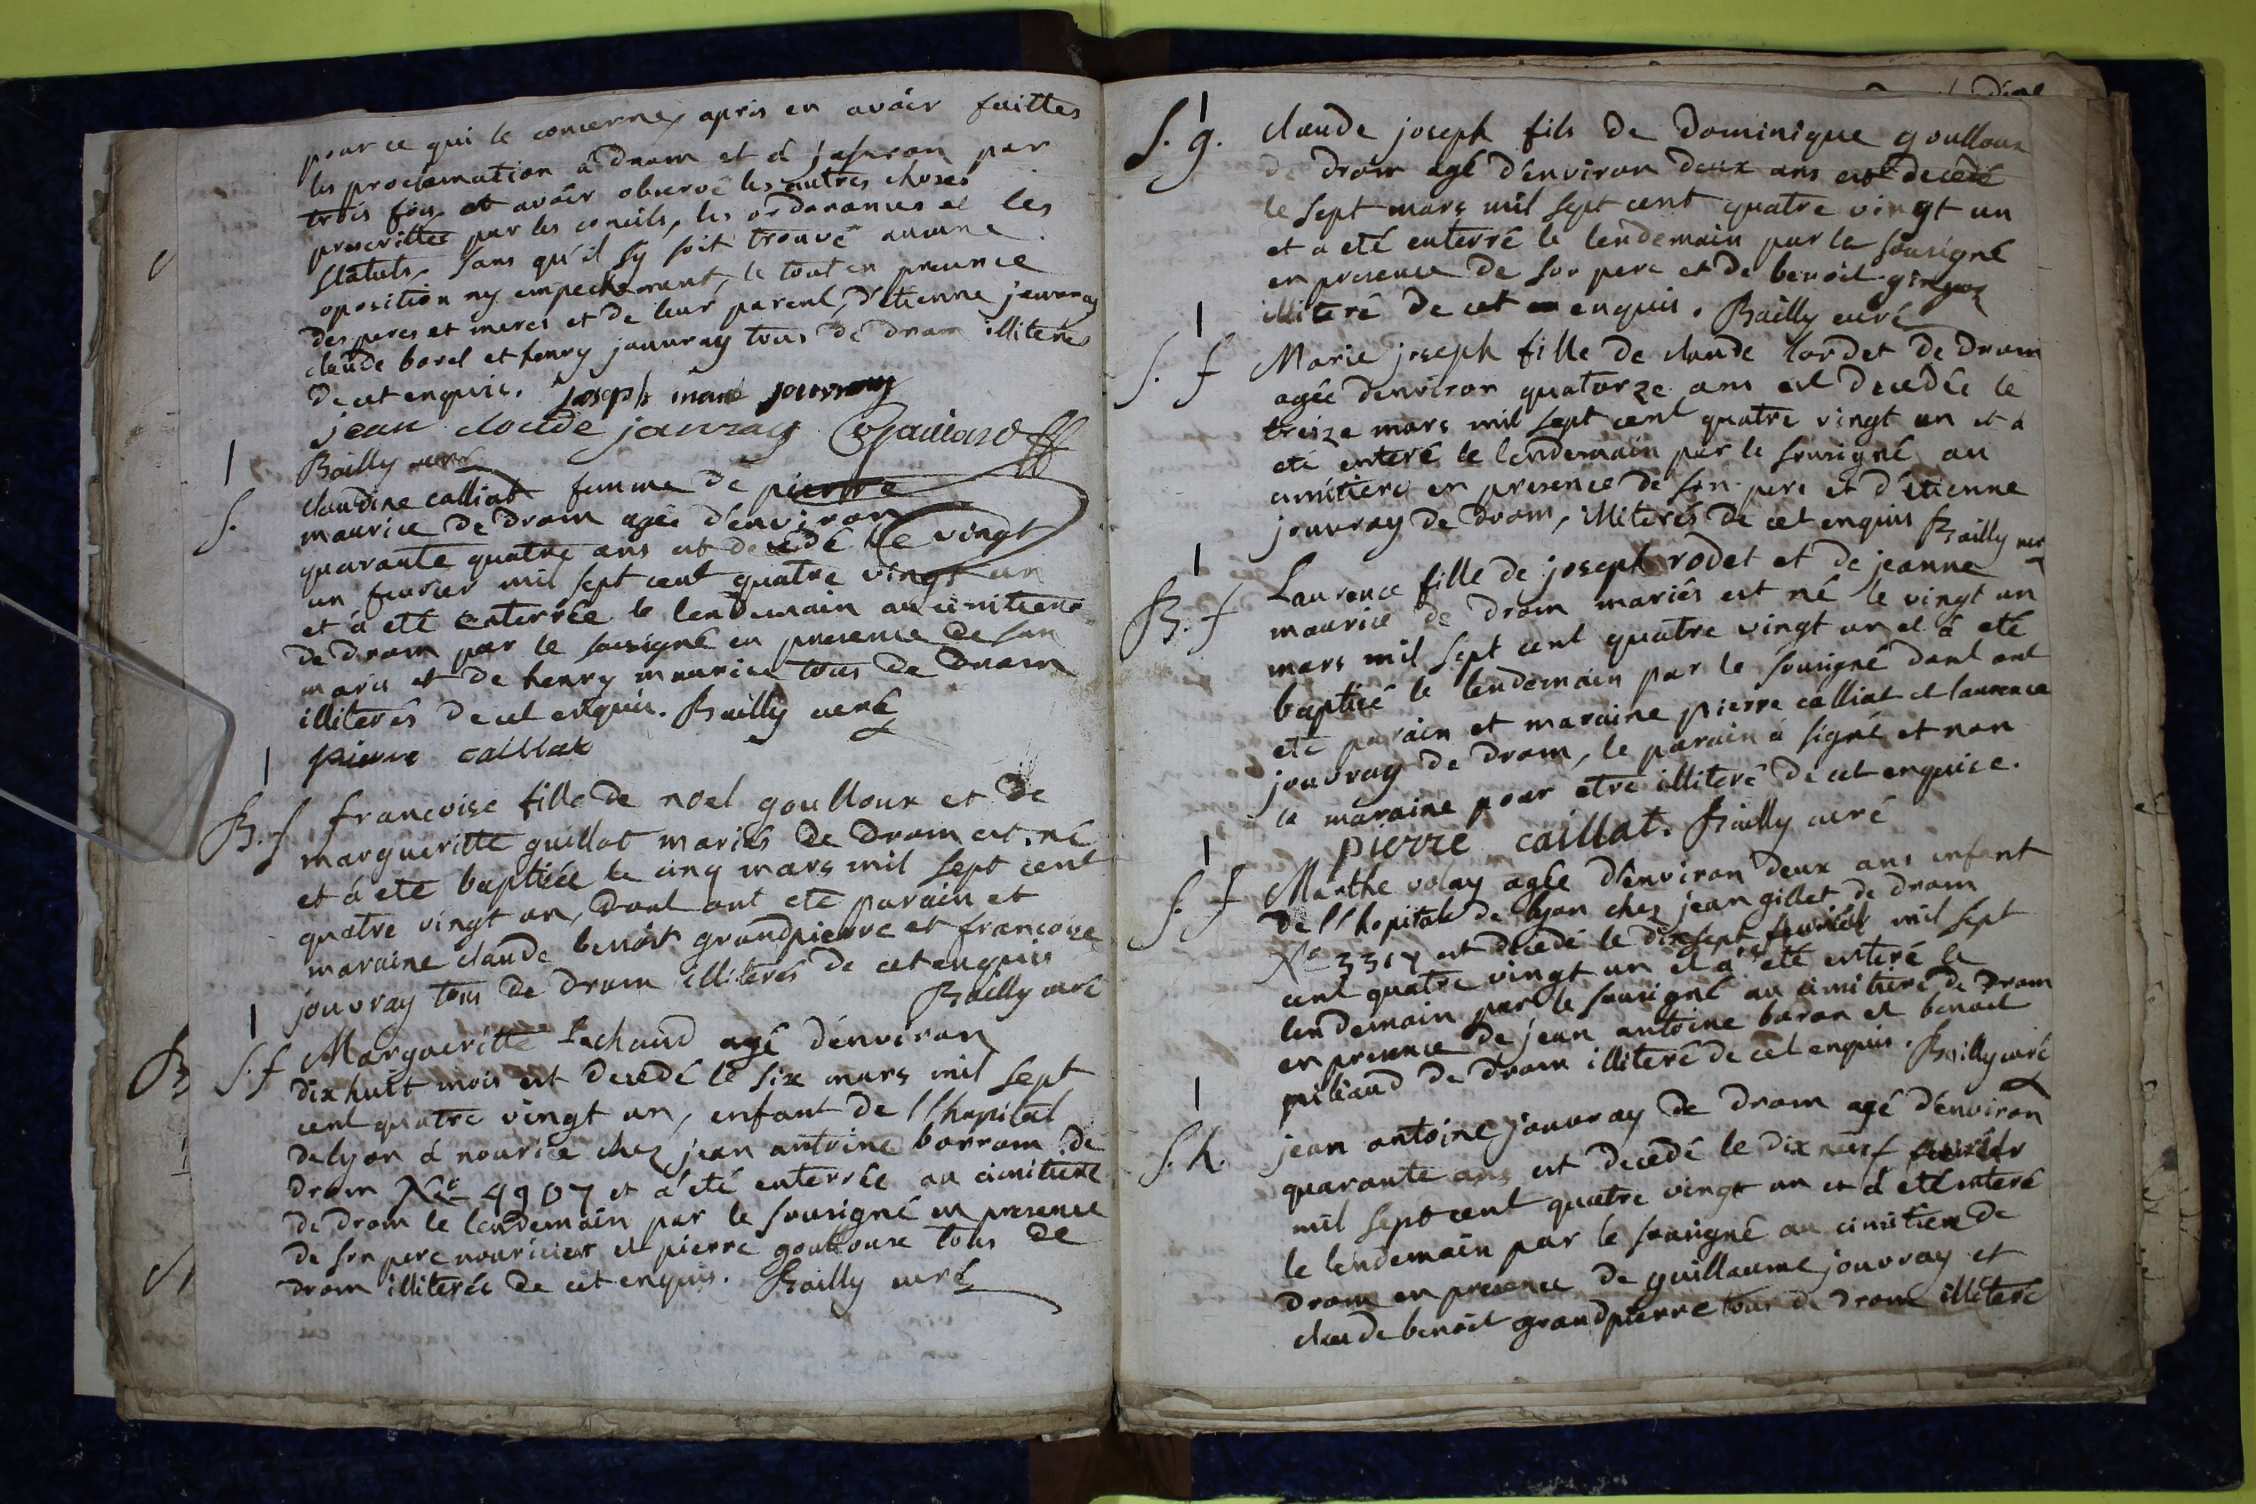 pour ce qui le concerne, apris en avoir faittes
les proclamation à dram et à jasseron par
trois fois et avoir observé les autres choses
prescrittes par les concils, les ordonances et les
statuts, sans qu'il sy soit trouvé aucune
oposition ny empechement, le tout en presence
des peres et meres et de leur parent, d'etienne jouvray
claude borel et henry jouvray tous de dram illiterés
de cet enquis. joseph marie jouvray
jean cloude jouvray
Bailly curé
S.
claudine calliat femme de pierre
maurice de dram agée d'environ
quarante quatre ans est decedé le vingt
un fevrier mil sept cent quatre vingt un
et à eté enterrée le lendemain au cimitiere
de dram par le sousigné en presence de son
maris et de henry maurice tous de dram
illiterés de cet enquis. Bailly curé
pierre caillat
B. f francoise fille de noel goulloux et de
margueritte guillot mariés de dram est né
et à eté baptiée le cinq mars mil sept cent
quatre vingt un, dont ont eté parain et
maraine claude benoit grandpierre et francoise
jouvray tous de dram illiterés de cet enquis
Bailly curé
S. f Margueritte Lachaud agé d'environ
dix huit mois est decedé le six mars mil sept
cent quatre vingt un, enfant de l'hopital
de lyon à nourice chez jean antoine borram de
dram N° 4907 et à eté enterrée au cimitiere
de dram le lendemain par le sousigné en presence
de son pere nouricier et pierre goulloux tous de
dram illiterés de cet enquis. Bailly curé
S. g. claude joseph fils de dominique goulloux
de dram agé d'environ deux ans est decedé
le sept mars mil sept cent quatre vingt un
et à eté enterré le lendemain par le sousigné
en presence de son pere et de benoit
illiteré de cet enquis. Bailly curé
S. f Marie joseph fille de claude lordet de dram
agée denviron quatorze ans est decedée le
treize mars mil sept cent quatre vingt un et à
eté enteré le lendemain par le sousigné au
cimitiere en presence de son pere et d'etienne
jouvray de dram, illiterés de cet enquis Bailly curé
B. f Laurence fille de joseph rodet et de jeanne
maurice de dram mariés est né le vingt un
mars mil sept cent quatre vingt un et à eté
baptiée le lendemain par le sousigné dont ont
eté parain et maraine pierre calliat et laurence
jouvray de dram, le parain à signé et non
la maraine pour etre illiteré de cet enquise.
pierre caillat. Bailly curé
S. f Marthe volay agée d'environ deux ans enfant
de l'hopital de lyon chez jean gillet de dram
N° est decedé le dix sept fevrier mil sept
cent quatre vingt un et à eté enteré le
lendemain par le sousigné au cimitiere de dram
en presence de jean antoine baron et benoit
de dram illiteré de cet enquis. Bailly curé
S. h. jean antoine jouvray de dram agé d'environ
quarante ans est decedé le dix neuf fevrier
mil sept cent quatre vingt un et à eté enteré
le lendemain par le sousigné au cimitiere de
dram en presence de guillaume jouvray et
claude benoit grandpierre tous de dram illiteré